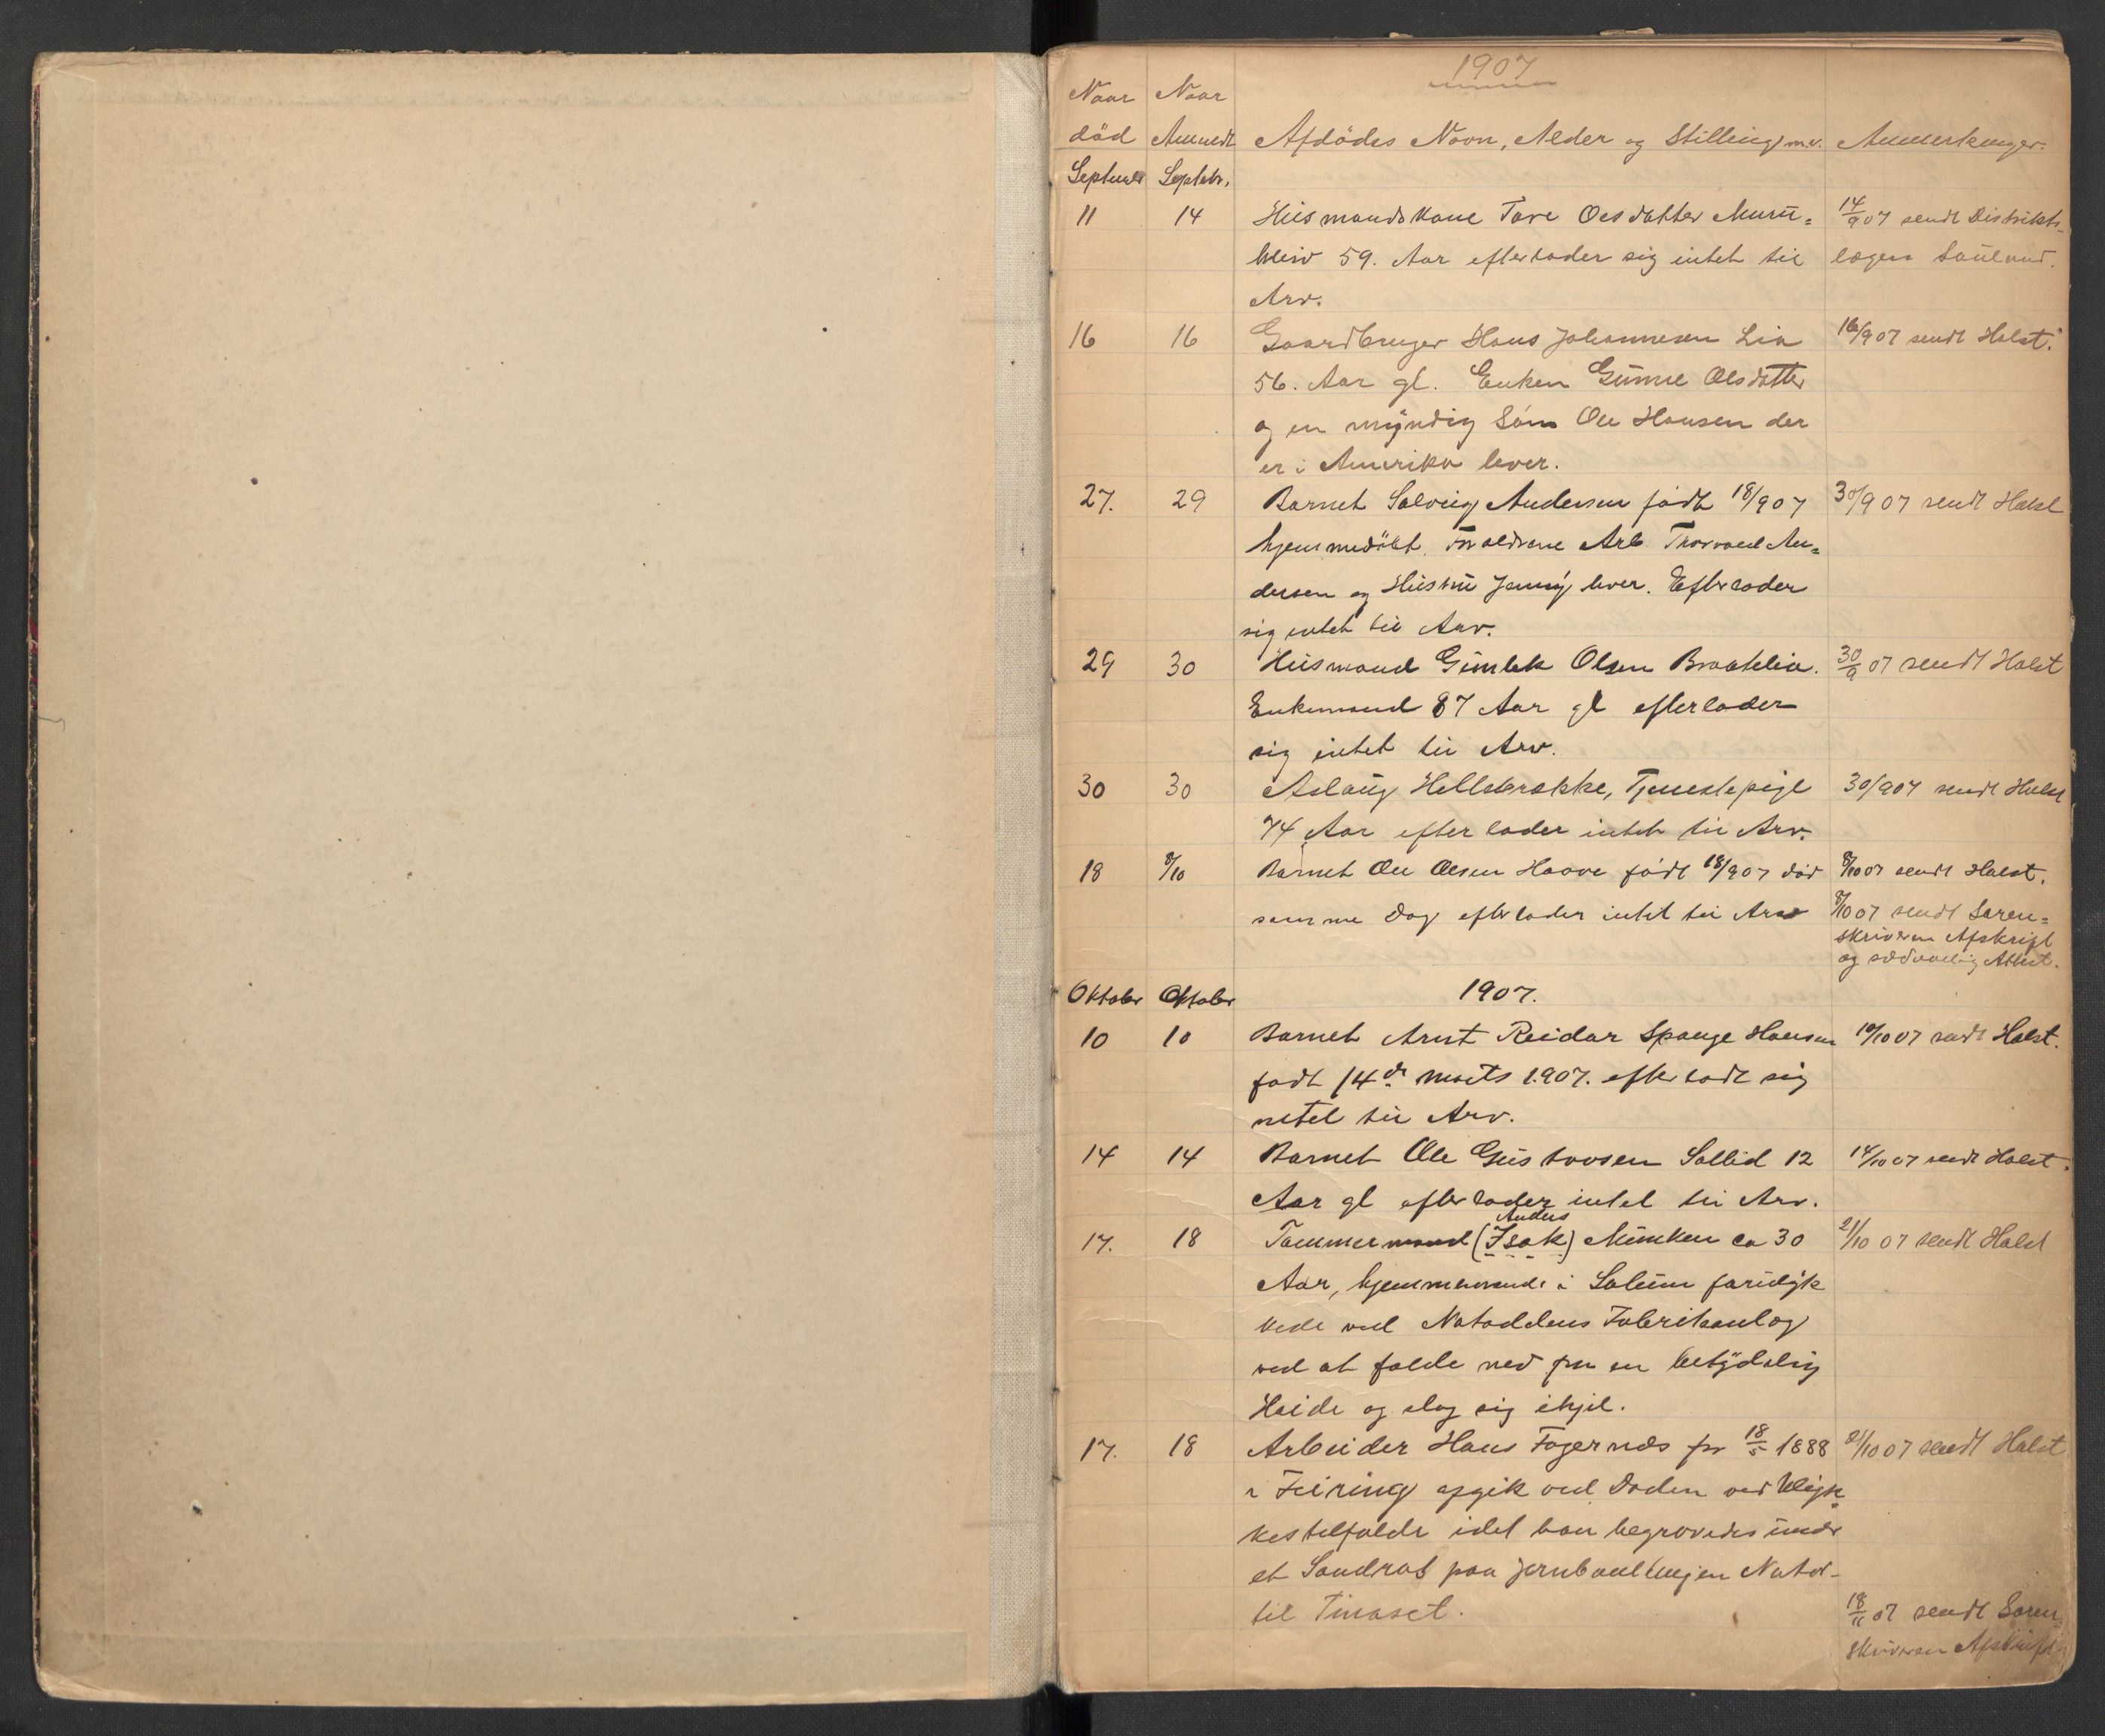 1907
Naar Naar
död Anmeldt Afdödes Navn, Alder og Stilling m.v. Anmerkninger.
Septembr Septebr.
11 14 Husmandskone Tore Olsdatter Murü= 14/9 07 sendt Distrikts-
59. Aar efterlader sig intet til lægen
Arv.
16 16 Gaardbruger Hans Johannesen Lia 16/9 07 sendt Holst.
56. Aar gl. Enken Gunne Olsdatter
og en myndig Søn Ole Hansen der
er i Amerika lever.
27. 29 Barnet Solveig Andersen født 18/9 07 30/9 07 sendt Holst
hjemmedøbt. Forældrene Arb. Thorvald An=
dersen og Hustru Jenny lever. Efterlader
sig intet til Arv.
29 30 Husmand Gunlek Olsen Braatelia. 30/9 07 sendt Holst
Enkemand 87 Aar gl efterlader
sig intet til Arv.
30 30 Aslaug Hellebrekke, Tjenestepige 30/9 07 sendt Holst
74 Aar efterlader intet til Arv.
18 8/10 Barnet Ole Olsen Haave født 18/9 07 död 8/10 07 sendt Holst.
samme Dag efterlader intet til Arv 8/10 07 sendt Soren=
skriveren Afskrift
og sædvanlig Attest.
Oktober Oktober 1907.
10 10 Barnet Arnt Reidar Spange Hansen 10/10 07 sendt Holst.
født 14de Marts 1907. efterlodt sig
intet til Arv.
14 14 Barnet Ole Gustavsen Sollid 12 14/10 07 sendt Holst.
Aar gl efterlader intet til Arv.
Anders
17. 18 Tømmermand (Isak) Munken ca 30 21/10 07 sendt Holst
Aar, hjemmehørende i Solum forulyk
kede ved Notoddens Fabrikanlæg
ved at falde ned fra en betydelig
Høide og slog sig ihjel.
17. 18 Arbeider Hans Fagernæs fr 18/5 1888 21/10 07 sendt Holst
i Feiring afgik ved Døden ved Ulyk
kestilfælde idet han begravedes under
et Sandras paa Jernbanelinjen Notod-
til Tinoset. 18/11 07 sendt Soren
skriveren Afskrift